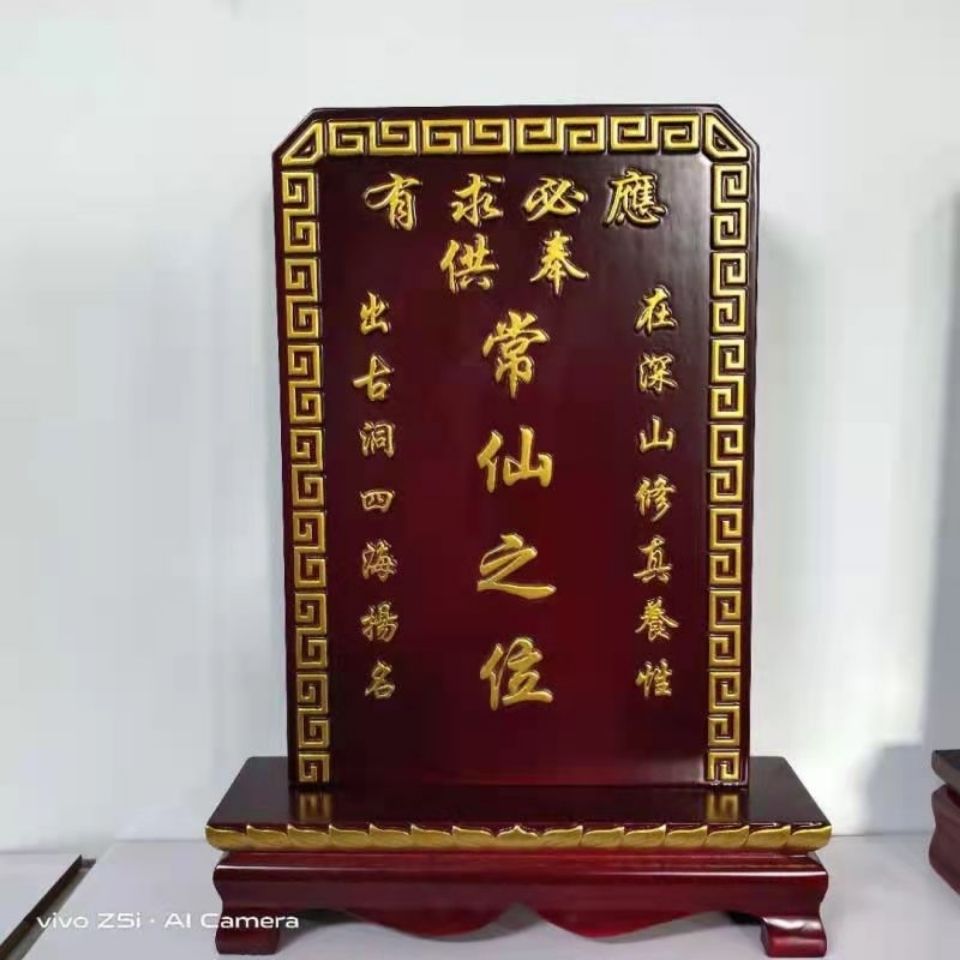 有求必應
供奉
在深山修真養性
常仙之位
出古洞四海揚名
vivo Z5i · AI Camera